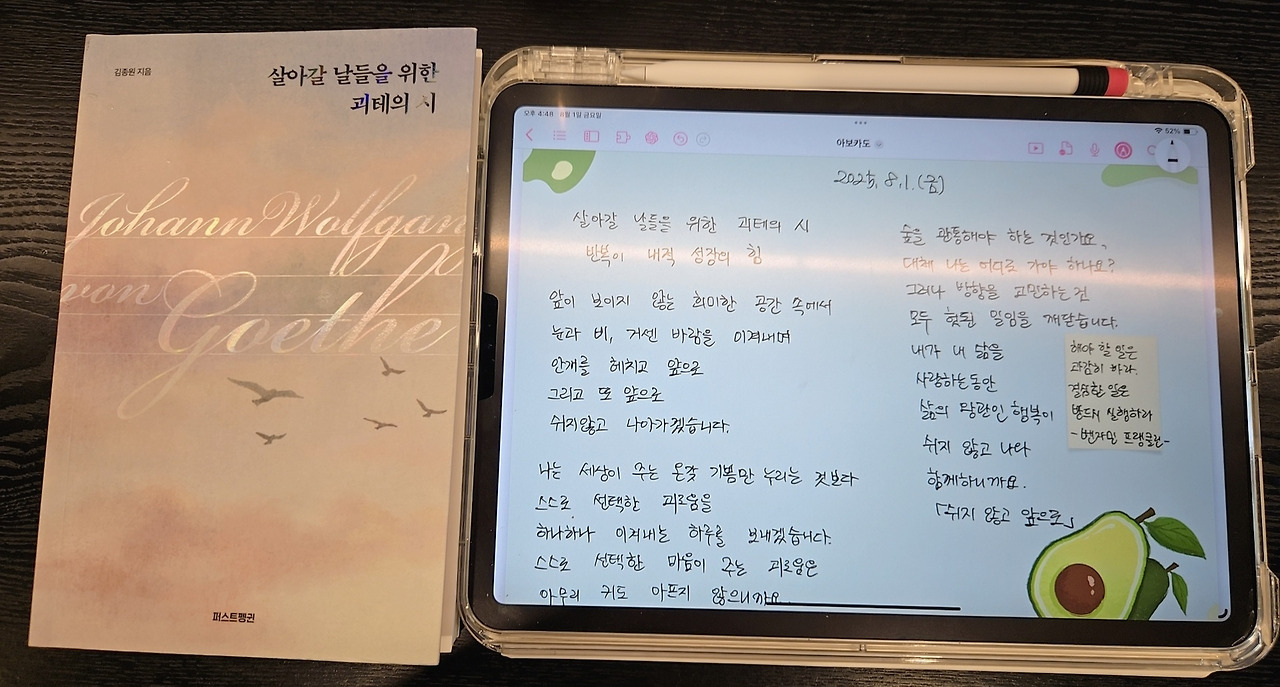 김종원 지음
살아갈 날들을 위한
괴테의 시
Johann Wolfgan
von
Goethe
퍼스트펭귄
오후 4:48 8월 1일 금요일
52%
아보카도
2025. 8. 1. (금)
살아갈 날들을 위한 괴테의 시
반복이 내적 성장의 힘
앞이 보이지 않는 희미한 공간 속에서
눈과 비, 거센 바람을 이겨내며
안개를 헤치고 앞으로
그리고 또 앞으로
쉬지않고 나아가겠습니다.
나는 세상이 주는 온갖 기쁨만 누리는 것보다
스스로 선택한 괴로움을
하나하나 이겨내는 하루를 보내겠습니다.
스스로 선택한 마음이 주는 괴로움은
아무리 커도 아프지 않으니까요.
숲을 관통해야 하는 것인가요,
대체 나는 어디로 가야 하나요?
그러나 방향을 고민하는 건
모두 헛된 일임을 깨닫습니다.
내가 내 삶을
사랑하는동안
삶의 말판인 행복이
쉬지 않고 나와
함께하니까요.
「쉬지 않고 앞으로」
해야 할 일은
과감히 하라.
결심한 일은
반드시 실행하라
-벤자민 프랭클린-